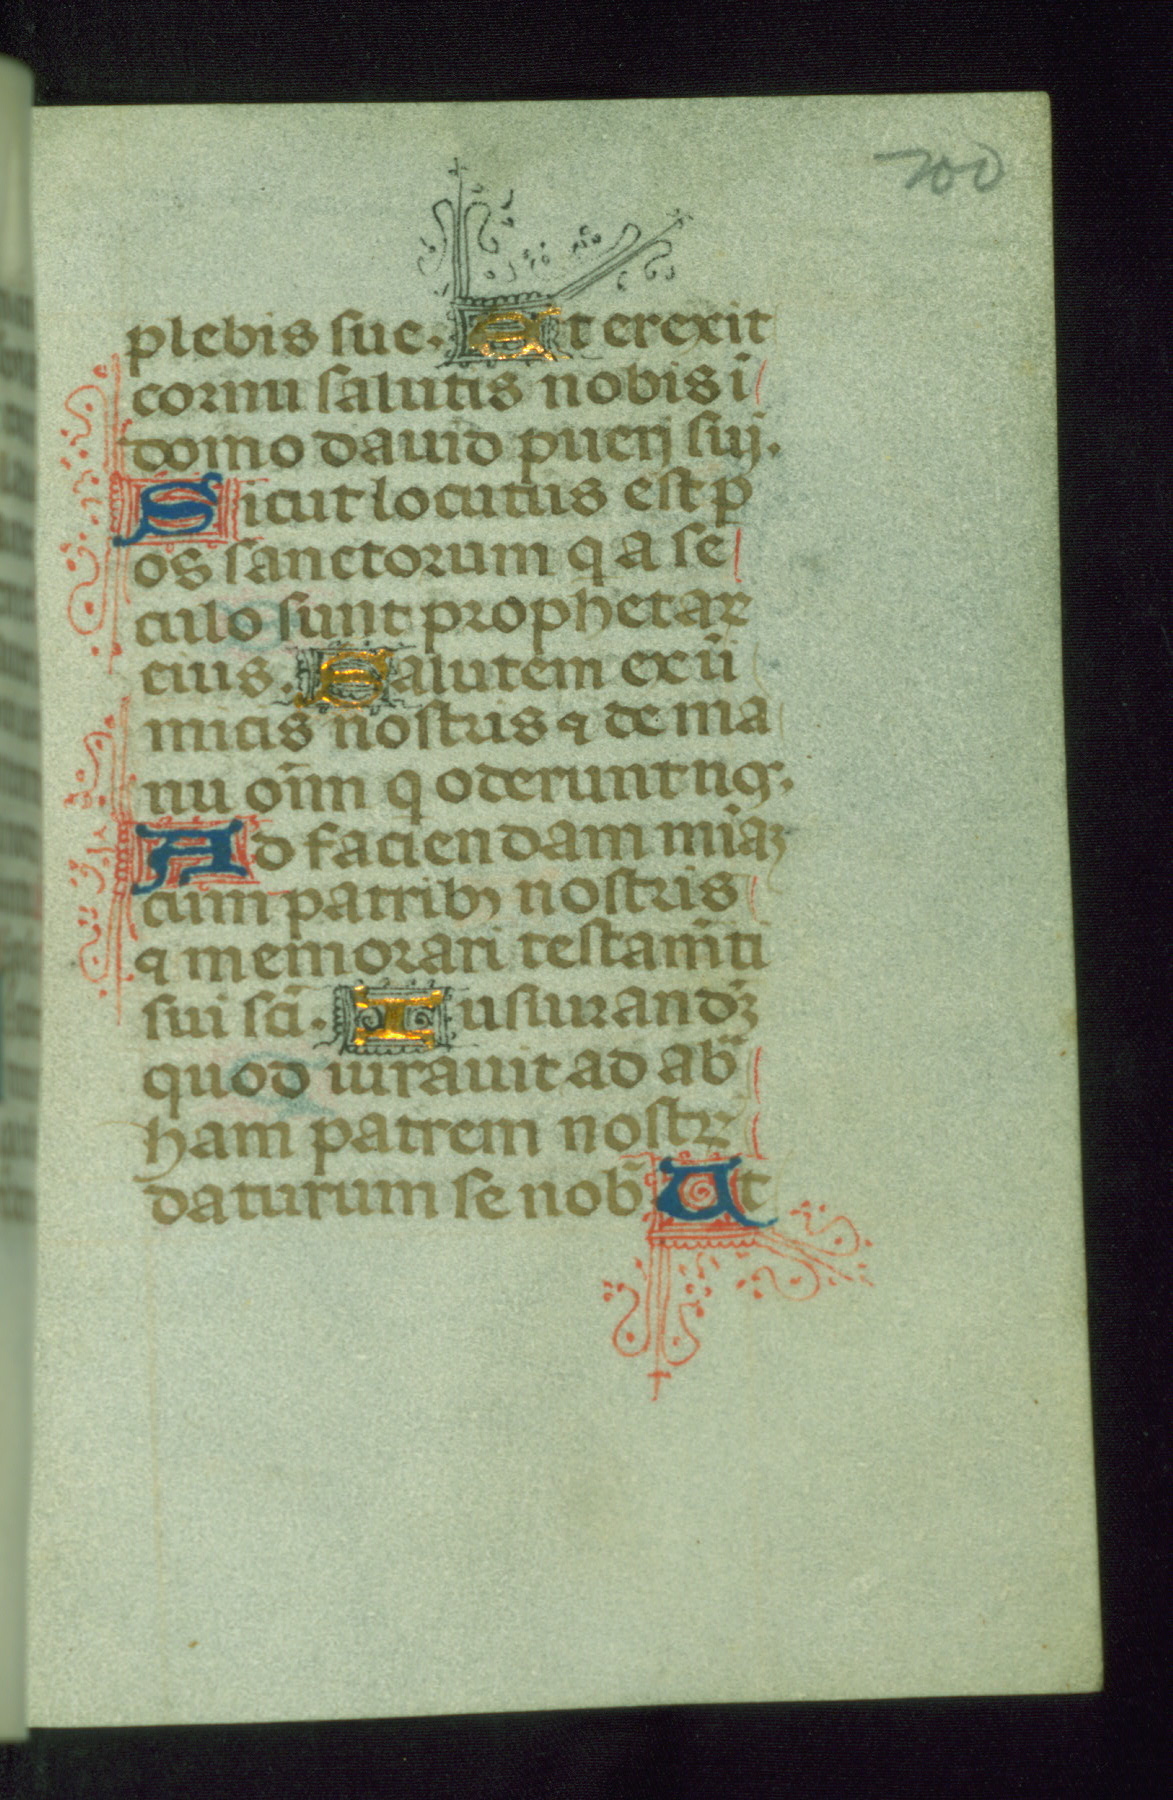 700
plebis sue. Et erexit
cornu salutis nobis ī
domo dauid puerj suj.
Sicut locutus est p
os sanctorum q a se
culo sunt prophetaꝝ
eius. Salutem ex ıı̄
imicis nostris ⁊ de ma
nu om̄m q oderunt nos.
Ad faciendam mīaꝫ
cum patribꝫ nostris
⁊ memorari testam̄ti
sui sc̄i. Iusiurandꝫ
quod iurauit ad ab̄
ham patrem nostꝝ
daturum se nob̄ Ut